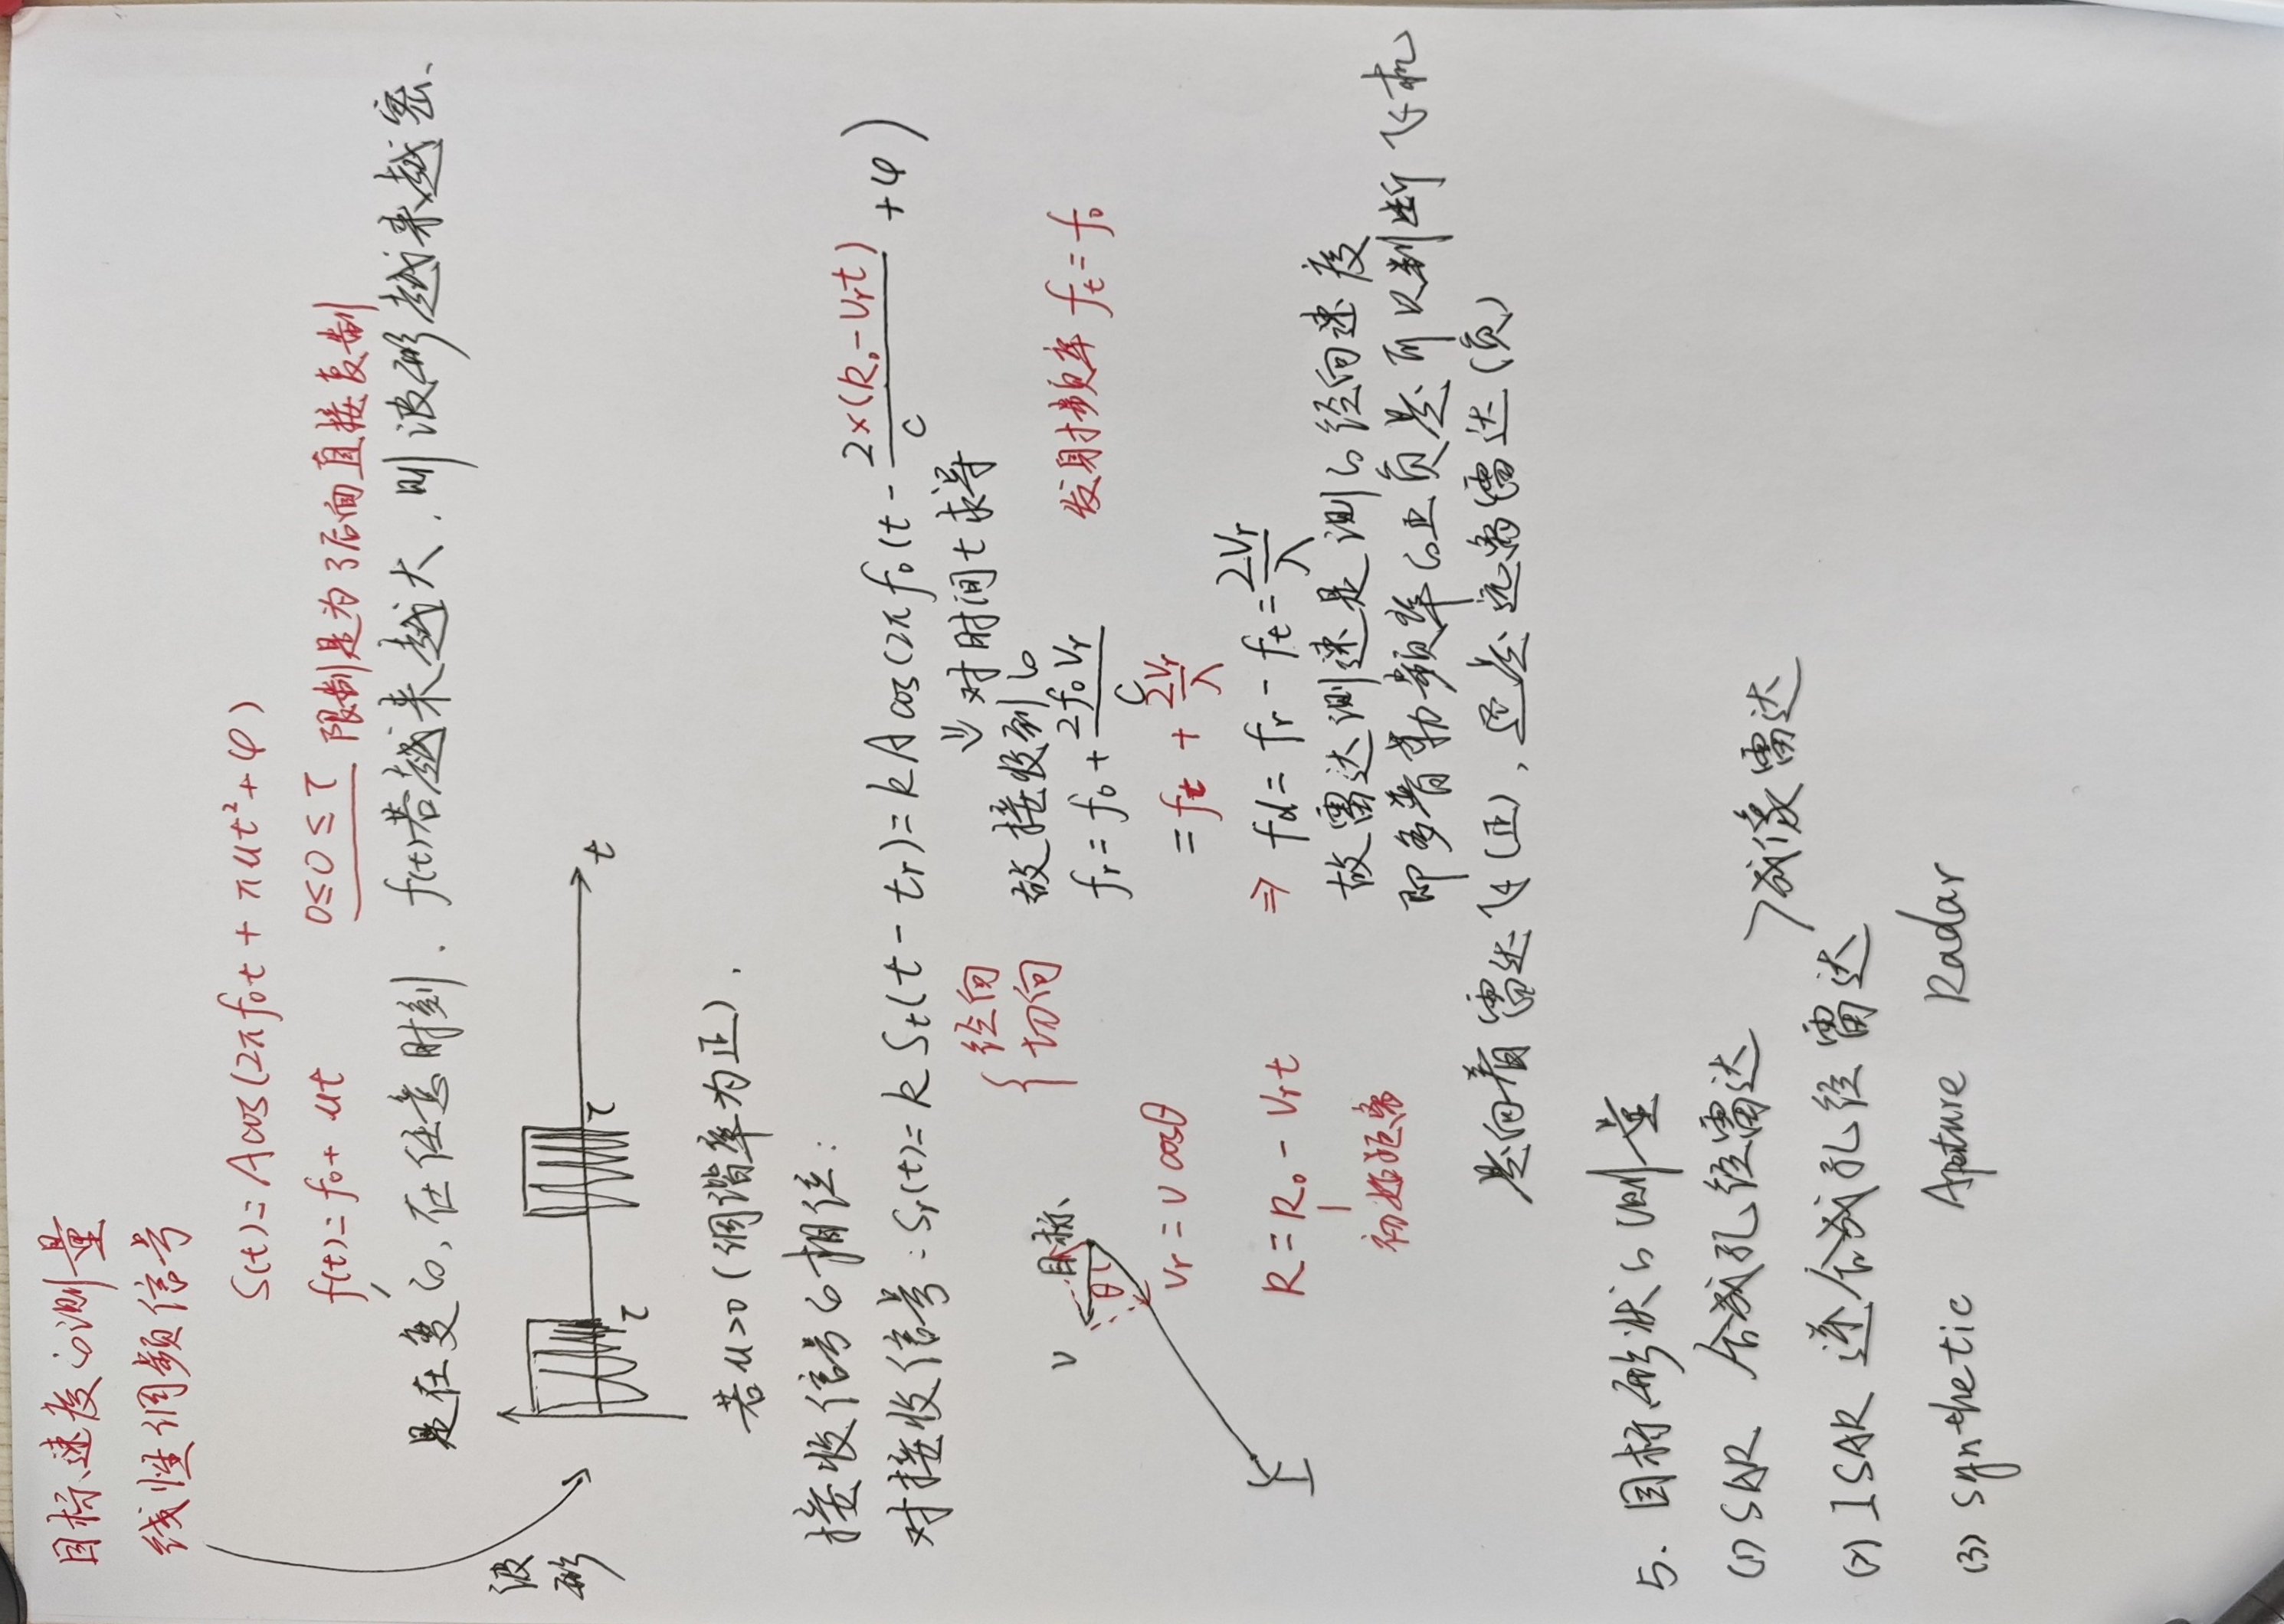 目标速度的测量
线性调频信号
S(t)=Acos(2πf₀t+πut²+φ)
f(t)=f₀+ut
0≤0≤τ 限制是为了后面直接复制
是在变的,在任意时刻.f(t)若越来越大.则波形越来越密、
波形
τ
τ
t
若u>0(调谐率为正).
接收信号的相位:
对接收信号:Sr(t)=kSt(t-tr)=kAcos(2πf₀(t-2×(R₀-Vrt)/c+φ)
⇓对时间t求得
{径向
切向
故接收到的
fr=f₀+2f₀Vr/c
发射频率ft=f₀
=ft+2Vr/λ
⇒fd=fr-ft=2Vr/λ
V
目标
θ
Vr=Vcosθ
R=R₀-Vrt
初始距离
故雷达测速是测的径向速度
即多普勒频率的正负是可以判断飞机
是向着雷达飞(正),还是远离雷达(负)
5.目标形状的测量
(1)SAR 合成孔径雷达
>成像雷达
(2)ISAR 逆合成孔径雷达
(3)Synthetic Apeture Radar